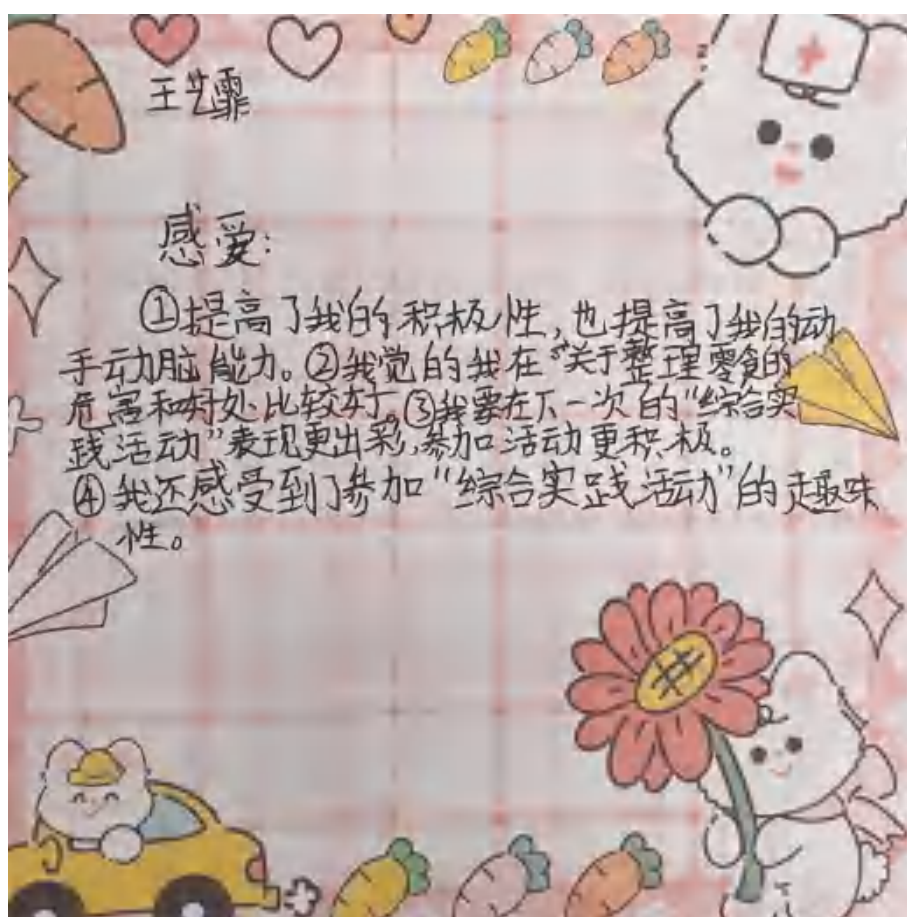 王艺霏
感爱:
①提高了我的积极性,也提高了我的动
手动脑能力。②我觉的我在“关于整理零食的
危害和好处比较好。③我要在下一次的“综合实
践活动”表现更出彩,参加活动更积极。
④我还感受到了参加“综合实践活动”的趣味
性。